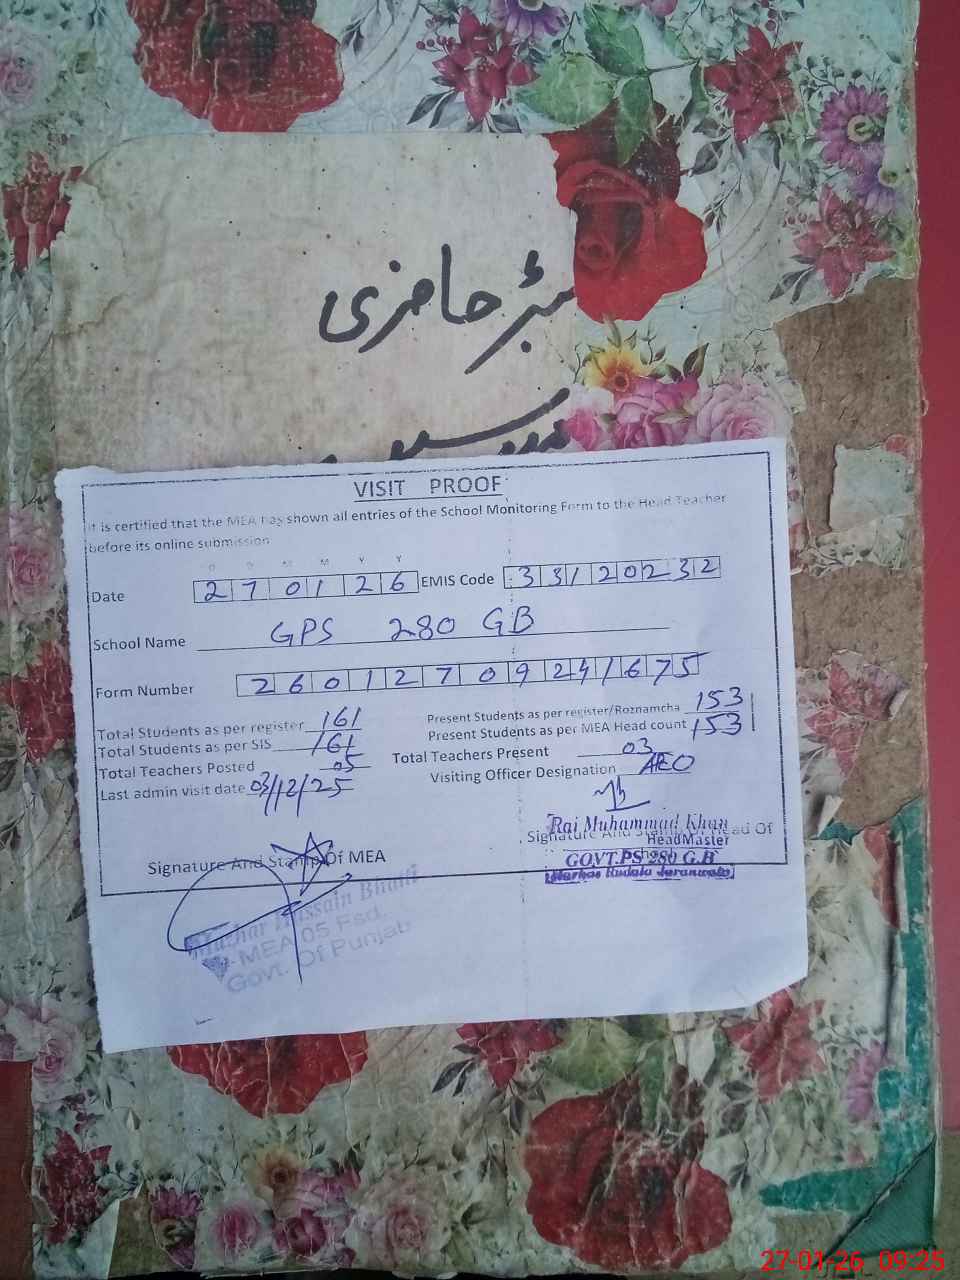 حاضری
VISIT PROOF
It is certified that the MEA has shown all entries of the School Monitoring Form to the Head Teacher
before its online submission
D D M M Y Y
Date 270126 EMIS Code 33120232
School Name GPS 280 GB
Form Number 26012709241675
Total Students as per register 161 Present Students as per register/Roznamcha 153
Total Students as per SIS 161 Present Students as per MEA Head count 153
Total Teachers Posted 05 Total Teachers Present 03
Last admin visit date 03/12/25 Visiting Officer Designation AEO
Signature And Stamp Of MEA Signature And Stamp Of Head Of
Rai Muhammad Khan
HeadMaster
GOVT.PS 280 G.B
Markaz Rudala Jaranwala
Mazhar Hussain Bhatti
MEA 05 Fsd.
Govt. Of Punjab
27-01-26 09:25